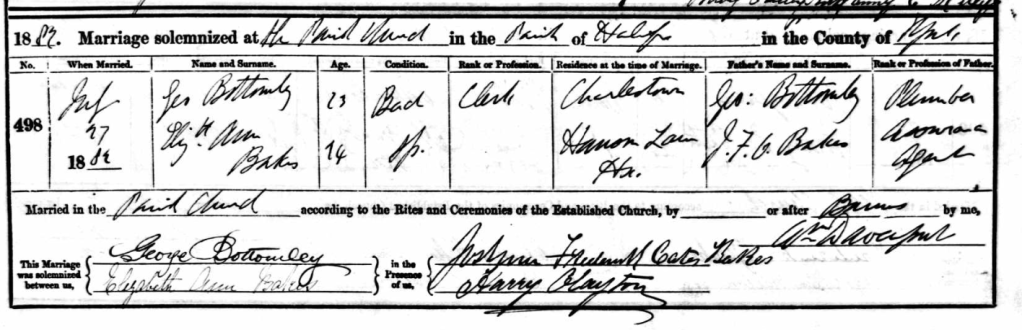 1882. Marriage solemnized at the Parish Church in the Parish of Halifax in the County of York
No. When Married. Name and Surname. Age. Condition. Rank or Profession. Residence at the time of Marriage. Father's Name and Surname. Rank or Profession of Father.
498 27 1882 Geo Bottomley 23 Bad Clerk Charlestown Geo: Bottomley Plumber
Elizth. Ann Bakes 24 Sp. Hanson Lane Hx. J. F. C. Bakes Assurance Agent
Married in the Parish Church according to the Rites and Ceremonies of the Established Church, by or after Banns by me,
Wm Davenport
This Marriage was solemnized between us, George Bottomley in the Presence of us, Joshua Frederick Cates Bakes
Elizabeth Ann Bakes Harry Clayton